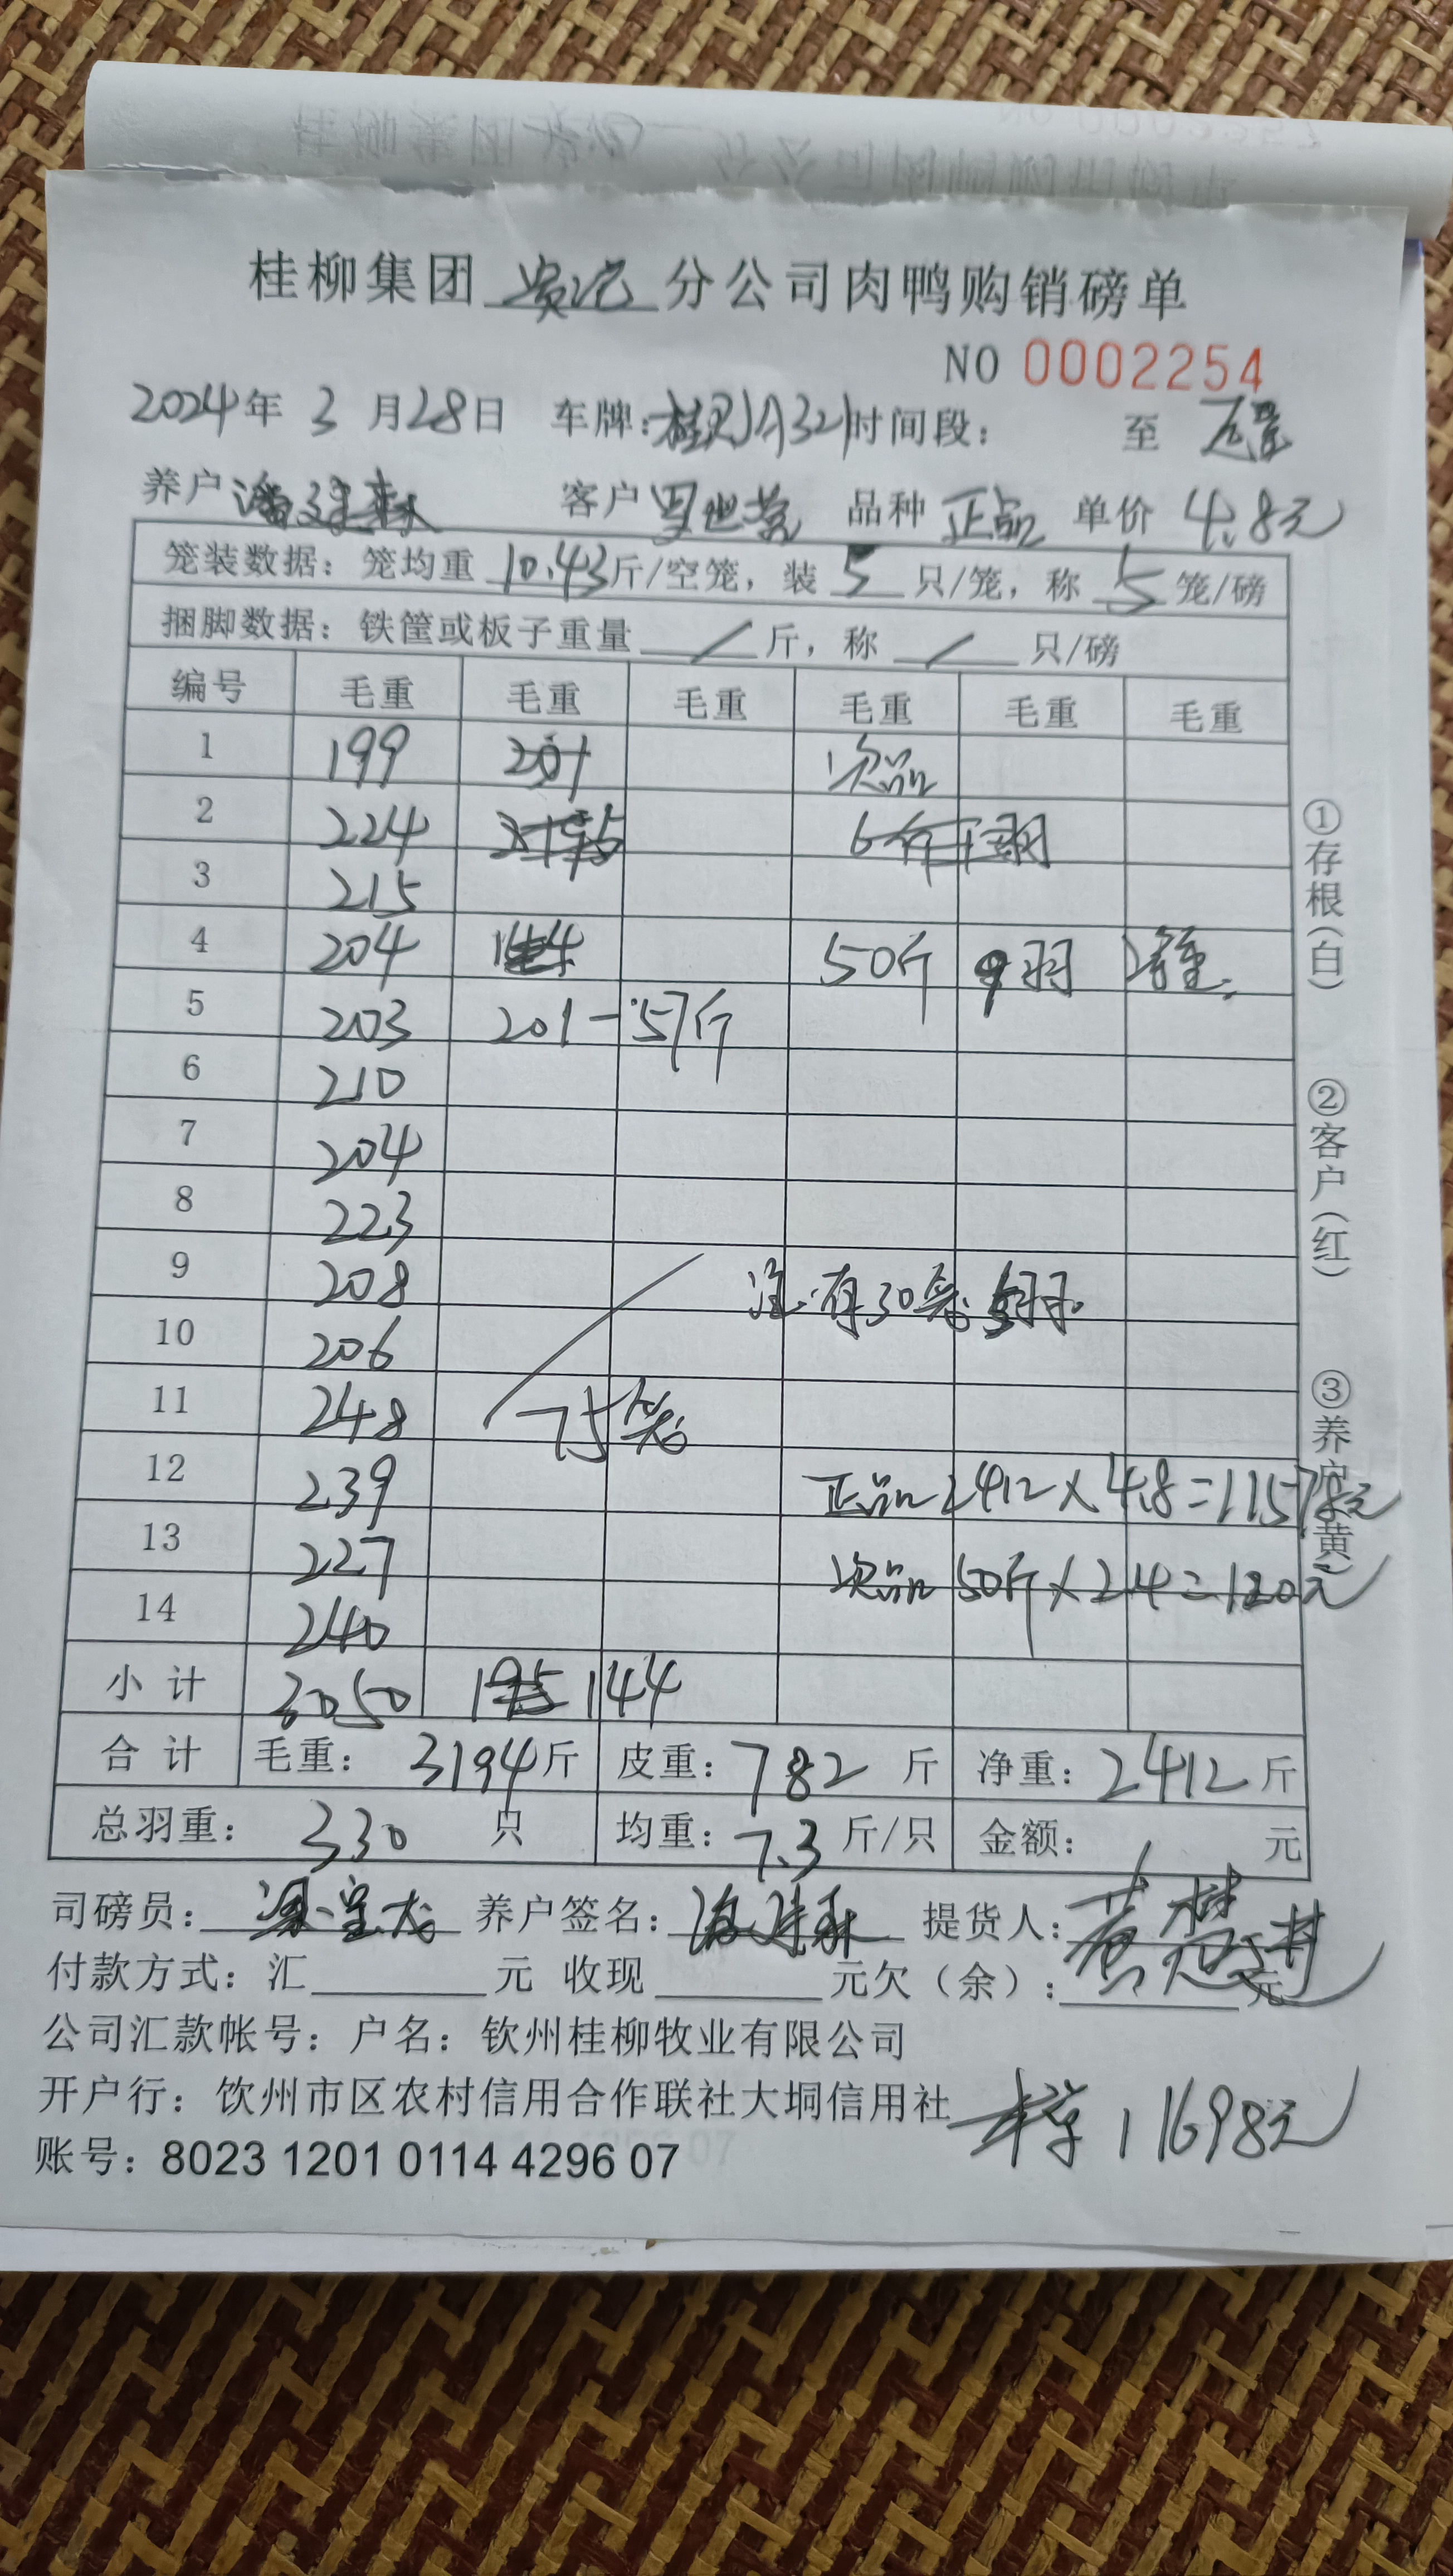 桂柳集团 分公司肉鸭购销磅单
NO 0002254
2024年 3 月28日 车牌: 时间段: 至
养户 客户 品种 正品 单价 4.8元
笼装数据: 笼均重 10.43斤/空笼, 装 5 只/笼, 称 5 笼/磅
捆脚数据: 铁筐或板子重量 / 斤, 称 / 只/磅
编号 毛重 毛重 毛重 毛重 毛重 毛重
1 199 201 次品
2 224 6斤 羽
3 215
4 204 50斤 9羽
5 203 201-57斤
6 210
7 204
8 223
9 208 注:有30笼
10 206
11 248 75笼
12 239 正品2412×4.8=11578元
13 227 次品50斤×2.4=120元
14 240
小计 3050 144
合计 毛重: 3194斤 皮重: 782 斤 净重: 2412斤
总羽重: 330 只 均重: 7.3斤/只 金额: / 元
司磅员: 养户签名: 提货人:
付款方式: 汇 元 收现 元欠(余): 元
公司汇款帐号: 户名: 钦州桂柳牧业有限公司
开户行: 饮州市区农村信用合作联社大垌信用社
11698元
账号: 8023 1201 0114 4296 07
①存根(白)
②客户(红)
③养户(黄)